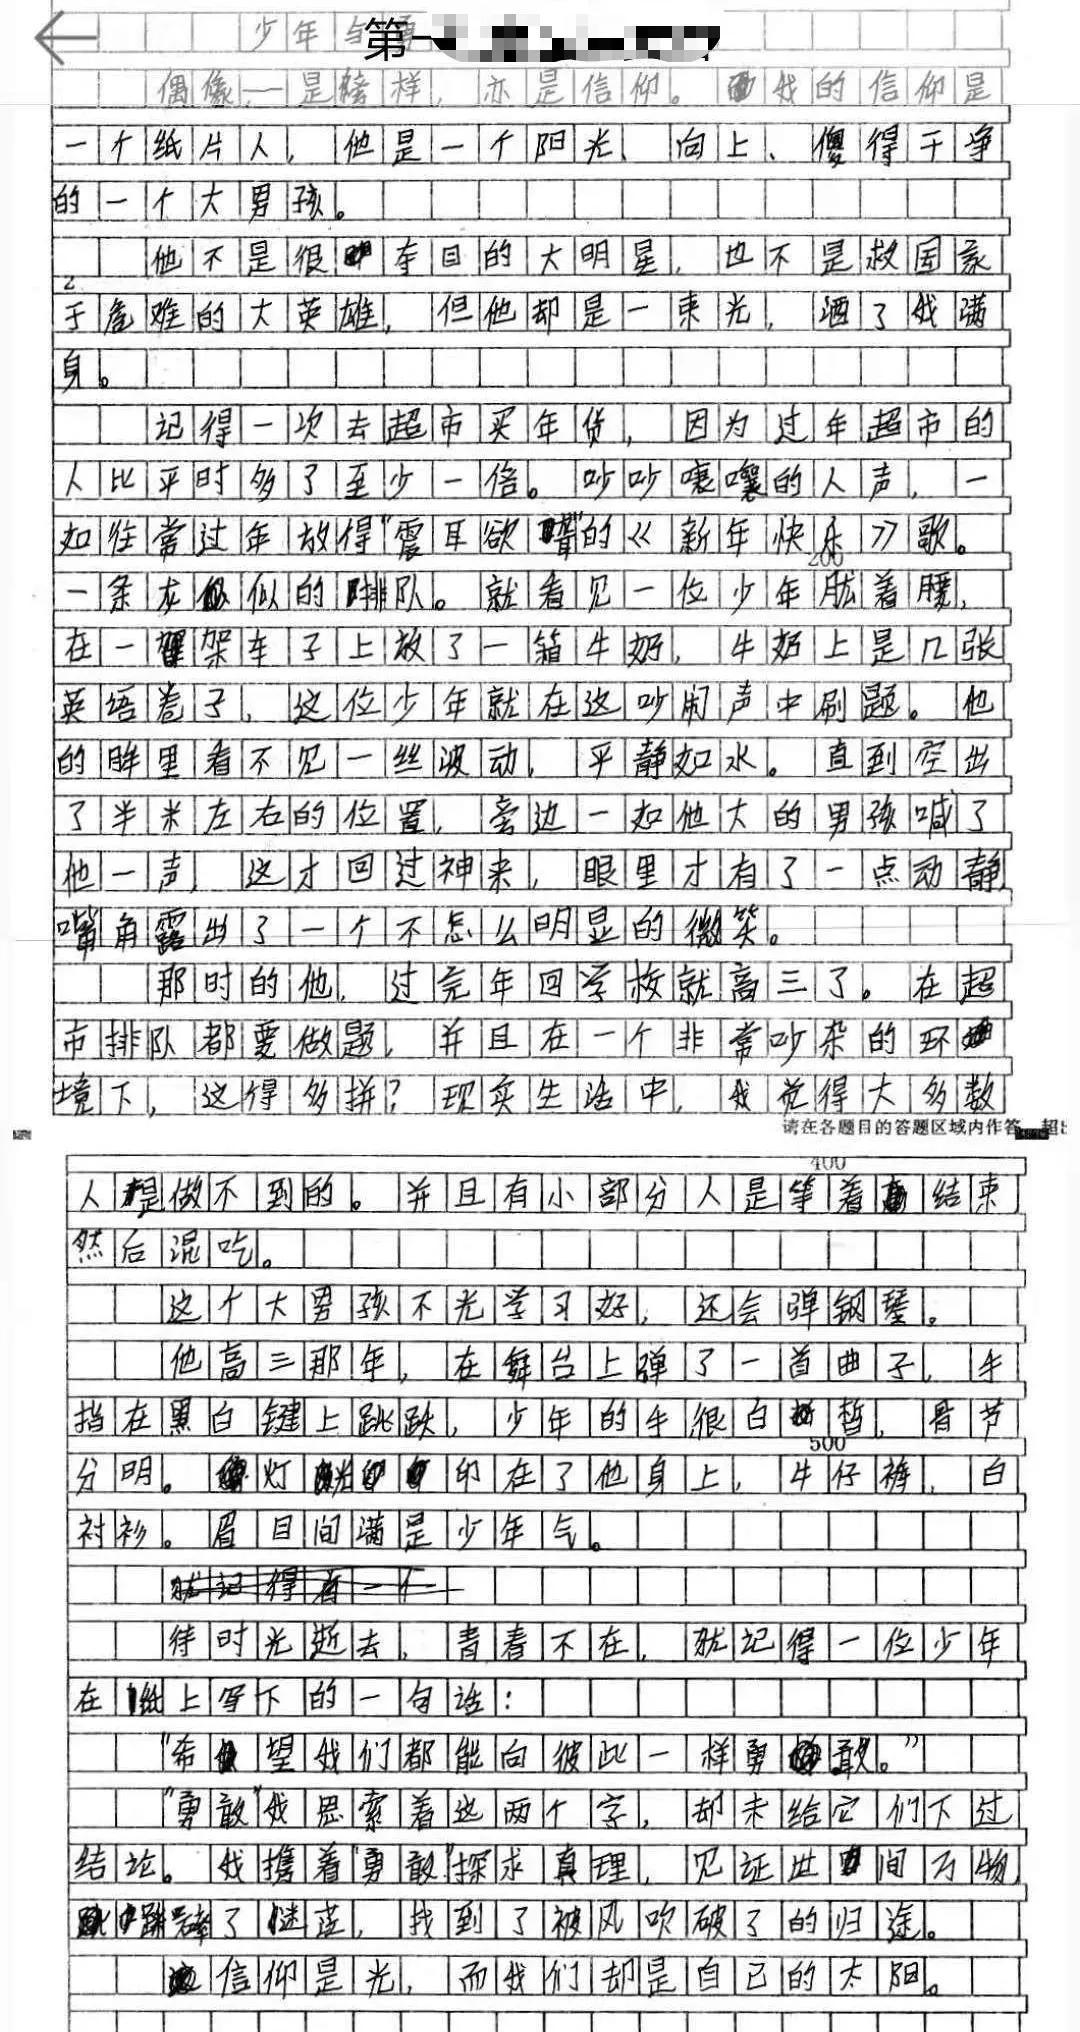 少年与
第一
偶像,一是榜样,亦是信仰。我的信仰是
一个纸片人,他是一个阳光、向上、傻得干净
的一个大男孩。
他不是很夺目的大明星,也不是救国家
于危难的大英雄,但他却是一束光,洒了我满
身。
记得一次去超市买年货,因为过年超市的
人比平时多了至少一倍。吵吵嚷嚷的人声,一
如往常过年放得“震耳欲聋”的《新年快乐》歌。
200
一条龙似的排队。就看见一位少年肱着腰,
在一架车子上放了一箱牛奶,牛奶上是几张
英语卷子,这位少年就在这吵闹声中刷题。他
的眸里看不见一丝波动,平静如水。直到空出
了半米左右的位置,旁边一如他大的男孩喊了
他一声,这才回过神来,眼里才有了一点动静,
嘴角露出了一个不怎么明显的微笑。
那时的他,过完年回学校就高三了。在超
市排队都要做题,并且在一个非常吵杂的环
境下,这得多拼?现实生活中,我觉得大多数
请在各题目的答题区域内作答,超出
400
人是做不到的。并且有小部分人是等着结束
然后混吃。
这个大男孩不光学习好,还会弹钢琴。
他高三那年,在舞台上弹了一首曲子,手
指在黑白键上跳跃,少年的手很白皙,骨节
500
分明。灯印在了他身上,牛仔裤,白
衬衫。眉目间满是少年气。
就记得有一个
待时光逝去,青春不在,就记得一位少年
在纸上写下的一句话:
“希望我们都能向彼此一样勇敢。”
“勇敢”我思索着这两个字,却未给它们下过
结论。我携着“勇敢”探求真理,见证世间万物,
了迷茫,找到了被风吹破了的归途。
信仰是光,而我们却是自己的太阳。